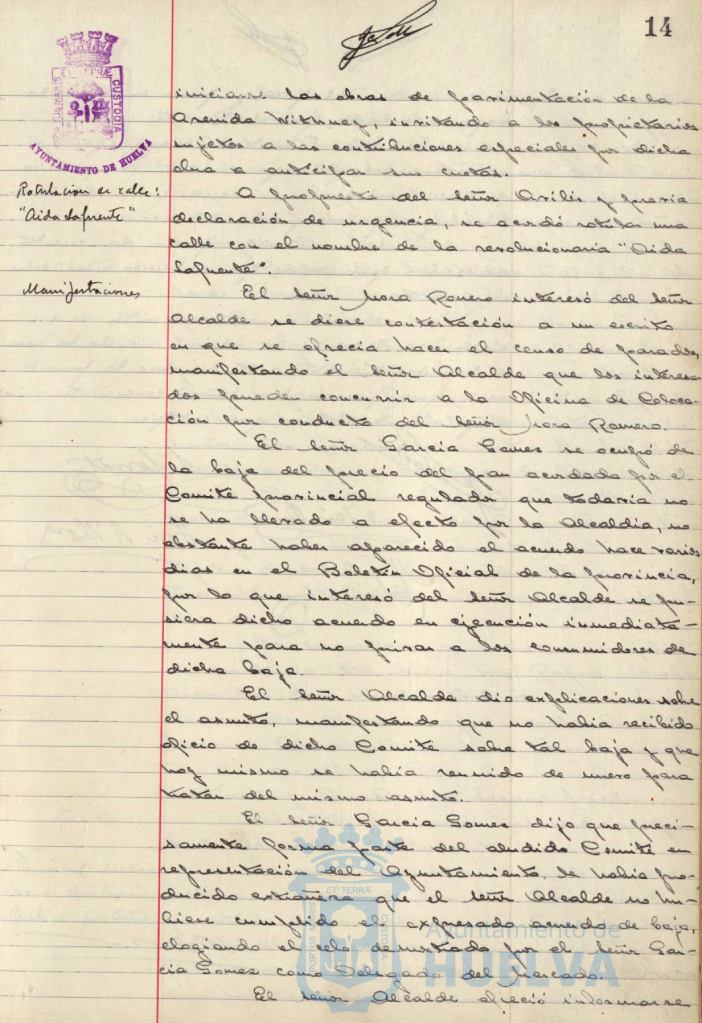 14
PORTUS MARIS ET TERRÆ CUSTODIA
AYUNTAMIENTO DE HUELVA
iniciarse las obras de pavimentación de la
Avenida Withney, invitando a los propietarios
sujetos a las contribuciones especiales por dicha
obra a anticipar sus cuotas.
Rotulacion de calle:
"Aida Lafuente"
A propuesta del Señor Avilés y previa
declaración de urgencia, se acordó rotular una
calle con el nombre de la revolucionaria "Aida
Lafuente".
Manifestaciones
El Señor Mora Romero interesó del Señor
Alcalde se diese contestación a un escrito
en que se ofrecía hacer el censo de parados,
manifestando el Señor Alcalde que los interesa-
dos pueden concurrir a la Oficina de Coloca-
ción por conducto del Señor Mora Romero.
El Señor García Gomez se ocupó de
la baja del precio del pan acordada por el
Comité provincial regulador que todavía no
se ha llevado a efecto por la Alcaldía, no
obstante haber aparecido el acuerdo hace varios
dias en el Boletín Oficial de la provincia,
por lo que interesó del Señor Alcalde se pu-
siera dicho acuerdo en ejecución inmediata-
mente para no privar a los consumidores de
dicha baja.
El Señor Alcalde dio explicaciones sobre
el asunto, manifestando que no habia recibido
oficio de dicho Comité sobre tal baja y que
hoy mismo se habia reunido de nuevo para
tratar del mismo asunto.
El Señor García Gomez dijo que preci-
samente forma parte del aludido Comité en
representación del Ayuntamiento, le habia pro-
ducido extrañeza que el Señor Alcalde no hu-
biese cumplido el expresado acuerdo de baja,
elogiando el celo demostrado por el Señor Gar-
cia Gomez como Delegado del Mercado.
El Señor Alcalde ofreció informarse
PORTUS MARIS ET TERRÆ CUSTODIA
Ayuntamiento de
HUELVA